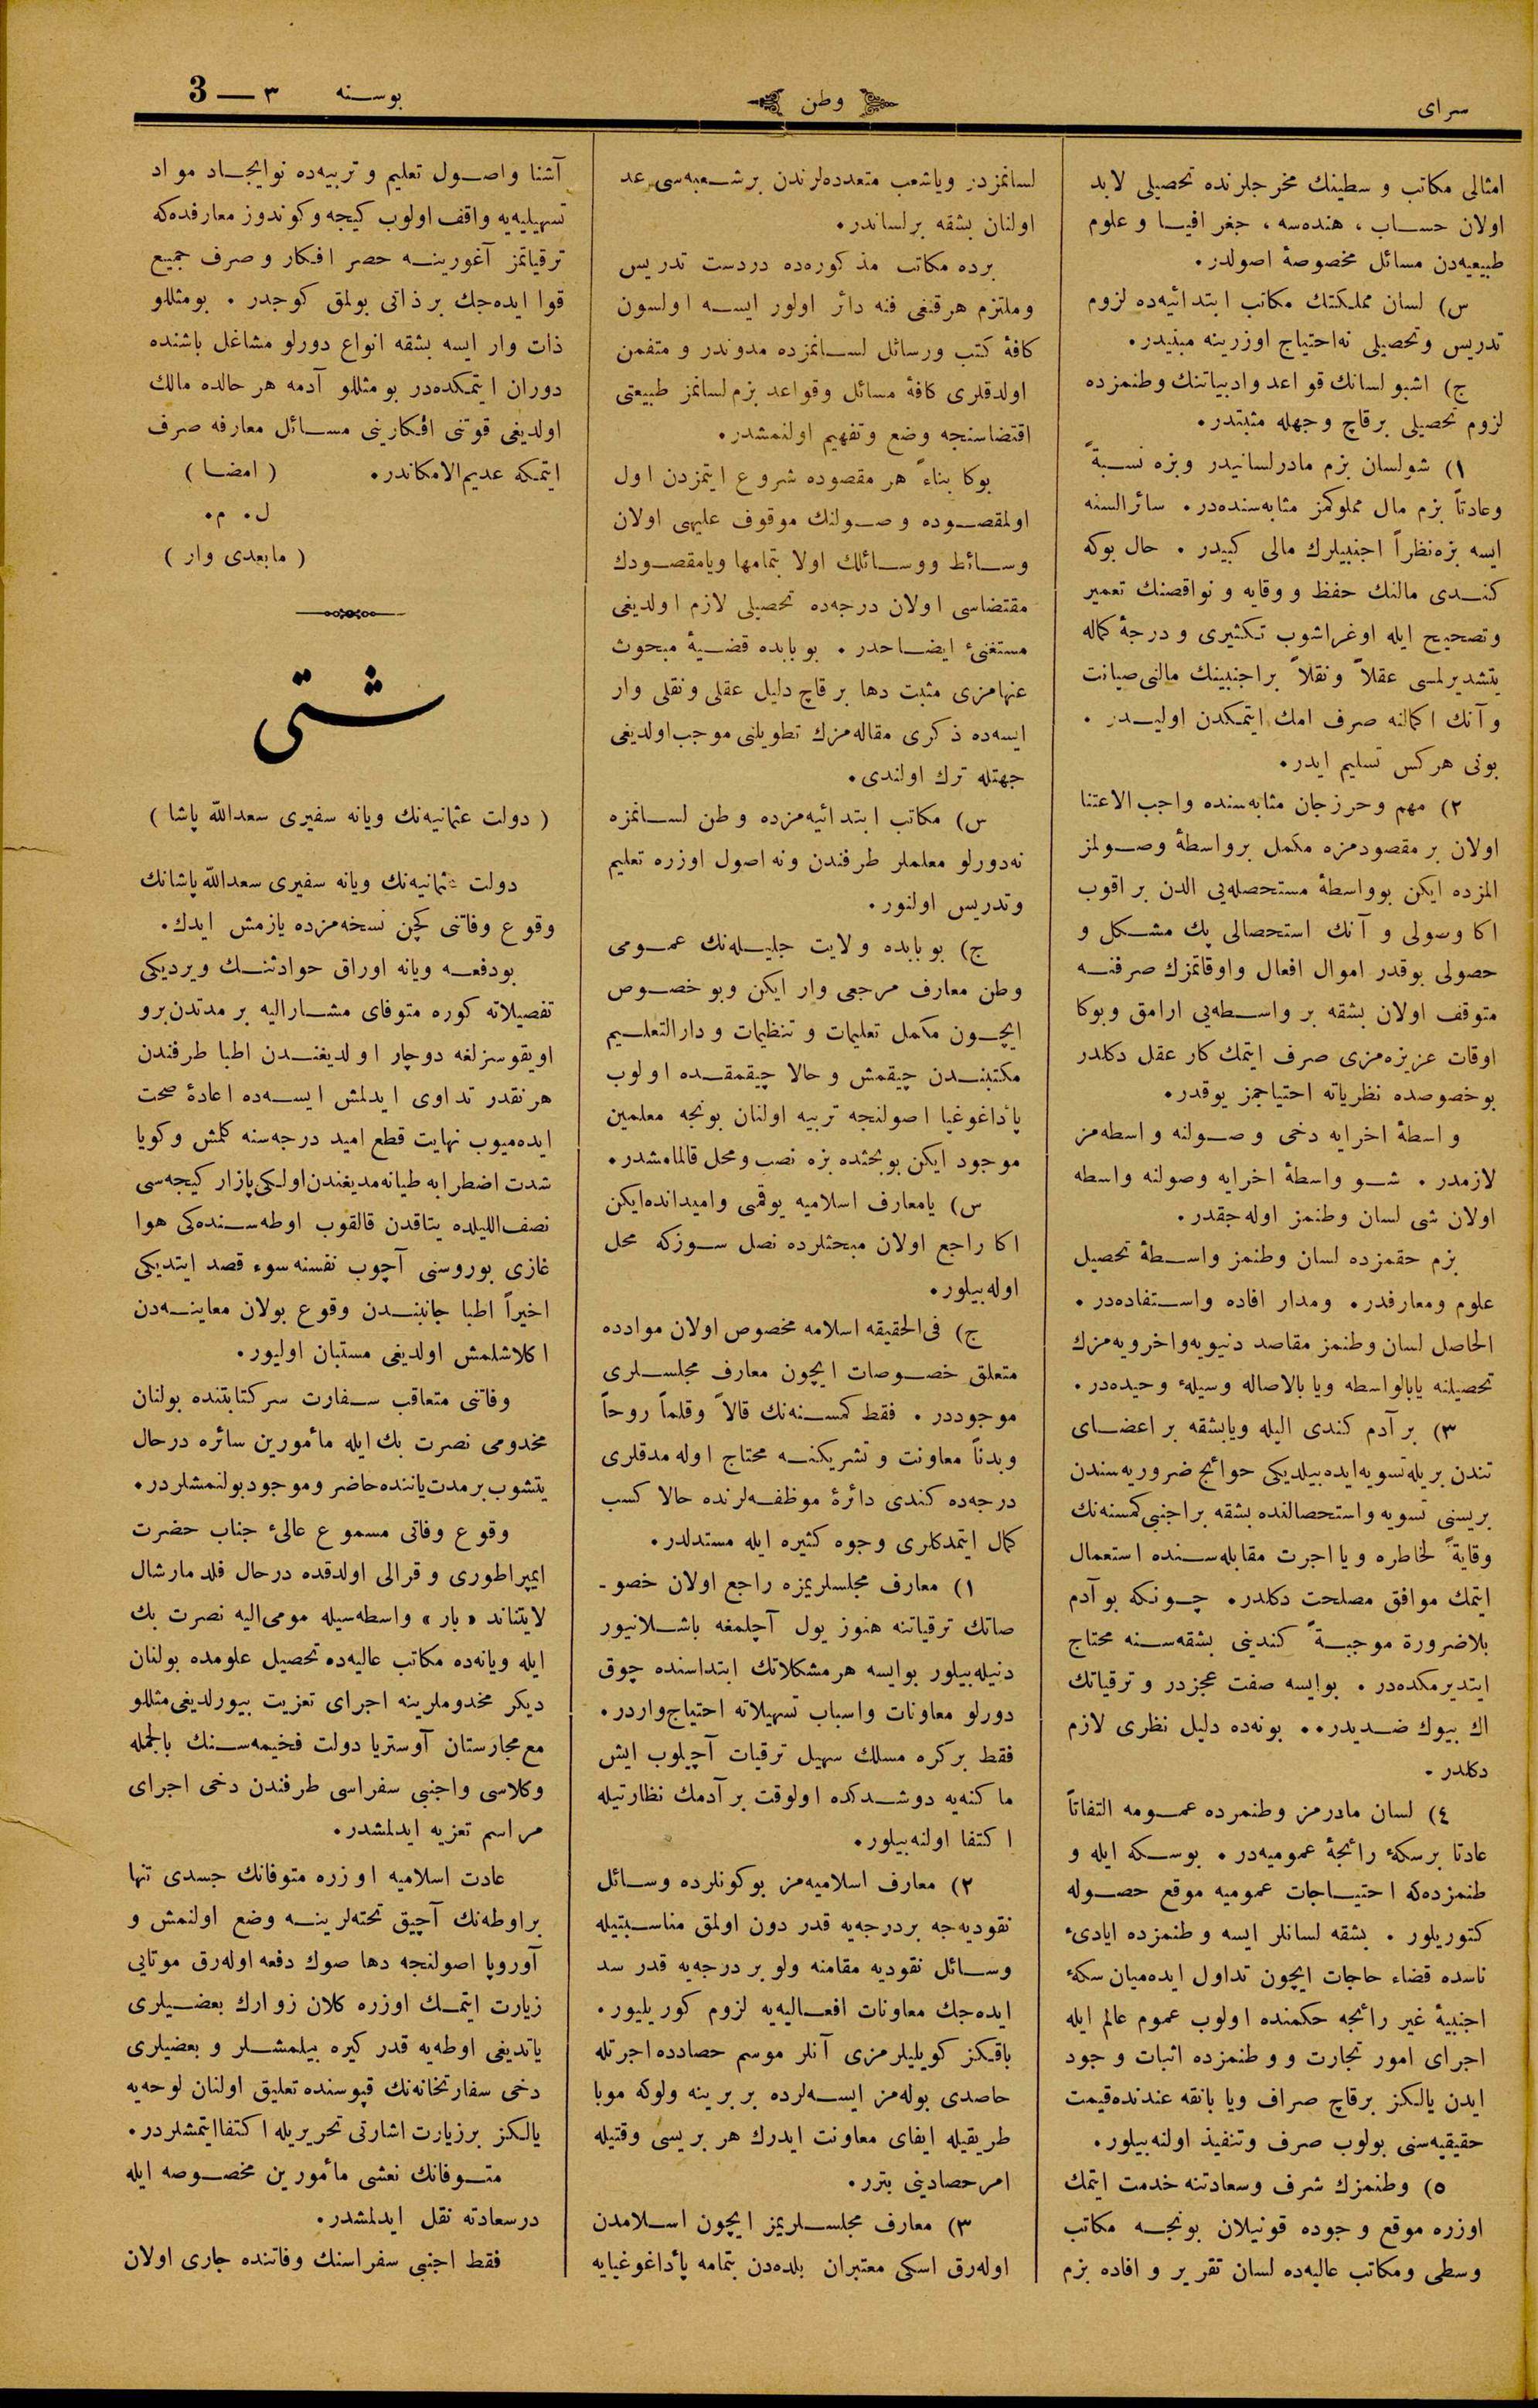 سرای
وطن
بوسنه ٣ — 3
امثالی مكاتب و سطینك مخرجلرنده تحصیلی لابد
اولان حساب ، هندسه ، جغرافیا و علوم
طبیعیه‌دن مسائل مخصوصهٔ اصولدر.
س) لسان مملكتك مكاتب ابتدائیه‌ده لزوم
تدریس وتحصیلی نه‌احتیاج اوزرینه مبنیدر.
ج) اشبو لسانك قواعد وادبیاتنك وطنمزده
لزوم تحصیلی برقاچ وجهله مثبتدر.
١) شولسان بزم مادرلسانیدر وبزه نسبةً
وعادتاً بزم مال مملوكمز مثابه‌سنده‌در. سائرالسنه
ایسه بزه‌نظراً اجنبیلرك مالی كبیدر. حال بوكه
كندی مالنك حفظ و وقایه و نواقصنك تعمیر
وتصحیح ایله اوغراشوب تكثیری و درجهٔ كماله
یتشدیرلمسی عقلاً ونقلاً براجنبینك مالنی صیانت
وآنك اكمالنه صرف امك ایتمكدن اولیدر.
بونی هركس تسلیم ایدر.
٢) مهم وحرزجان مثابه‌سنده واجب الاعتنا
اولان بر مقصودمزه مكمل برواسطهٔ وصولمز
المزده ایكن بوواسطهٔ مستحصله‌یی الدن براقوب
اكا وصولی و آنك استحصالی پك مشكل و
حصولی بوقدر اموال افعال واوقاتمزك صرفنه
متوقف اولان بشقه بر واسطه‌یی ارامق وبوكا
اوقات عزیزه‌مزی صرف ایتمك كار عقل دكلدر
بوخصوصده نظریاته احتیاجمز یوقدر.
واسطهٔ اخرایه دخی وصولنه واسطه‌مز
لازمدر. شو واسطهٔ اخرایه وصولنه واسطه
اولان شی لسان وطنمز اوله‌جقدر.
بزم حقمزده لسان وطنمز واسطهٔ تحصیل
علوم ومعارفدر. ومدار افاده واستفاده‌در.
الحاصل لسان وطنمز مقاصد دنیویه‌واخرویه‌مزك
تحصیلنه یابالواسطه ویا بالاصاله وسیلهٔ وحیده‌در.
٣) برآدم كندی الیله ویابشقه براعضای
تندن بریله تسویه‌ایده‌بیلدیكی حوائج ضروریه‌سندن
بریسنی تسویه واستحصالنده بشقه براجنبی كمسنه‌نك
وقایةً لخاطره ویا اجرت مقابله‌سنده استعمال
ایتمك موافق مصلحت دكلدر. چونكه بوآدم
بلاضرورة موجبةً كندینی بشقه‌سنه محتاج
ایتدیرمكده‌در. بوایسه صفت عجزدر و ترقیاتك
اك بیوك ضدیدر.. بونه‌ده دلیل نظری لازم
دكلدر.
٤) لسان مادرمز وطنمرده عمومه التفاتاً
عادتا برسكهٔ رائجهٔ عمومیه‌در. بوسكه ایله و
طنمزده‌كه احتیاجات عمومیه موقع حصوله
كتوریلور. بشقه لسانلر ایسه وطنمزده ایادیٔ
ناسده قضاء حاجات ایچون تداول ایده‌میان سكهٔ
اجنبیهٔ غیر رائجه حكمنده اولوب عموم عالم ایله
اجرای امور تجارت و وطنمزده اثبات وجود
ایدن یالكز برقاچ صراف ویا بانقه عندنده‌قیمت
حقیقیه‌سنی بولوب صرف وتنفیذ اولنه‌بیلور.
٥) وطنمزك شرف وسعادتنه خدمت ایتمك
اوزره موقع وجوده قونیلان بونجه مكاتب
وسطی ومكاتب عالیه‌ده لسان تقریر و افاده بزم
لسانمزدر ویاشعب متعدده‌لرندن برشعبه‌سی عد
اولنان بشقه برلساندر.
برده مكاتب مذكوره‌ده دردست تدریس
وملتزم هرقنغی فنه دائر اولور ایسه اولسون
كافهٔ كتب ورسائل لسانمزده مدوندر و متفمن
اولدقلری كافهٔ مسائل وقواعد بزم لسانمز طبیعتی
اقتضاسنجه وضع وتفهیم اولنمشدر.
بوكا بناءً هر مقصوده شروع ایتمزدن اول
اولمقصوده وصولنك موقوف علیهی اولان
وسائط ووسائلك اولا بتمامها ویامقصودك
مقتضاسی اولان درجه‌ده تحصیلی لازم اولدیغی
مستغنیٔ ایضاحدر. بوبابده قضیهٔ مبحوث
عنهامزی مثبت دها برقاچ دلیل عقلی ونقلی وار
ایسه‌ده ذكری مقاله‌مزك تطویلنی موجب‌اولدیغی
جهتله ترك اولندی.
س) مكاتب ابتدائیه‌مزده وطن لسانمزه
نه‌دورلو معلملر طرفندن ونه اصول اوزره تعلیم
وتدریس اولنور.
ج) بوبابده ولایت جلیله‌نك عمومی
وطن معارف مرجعی وار ایكن وبوخصوص
ایچون مكمل تعلیمات و تنظیمات ودارالتعلیم
مكتبندن چیقمش وحالا چیقمقده اولوب
پاداغوغیا اصولنجه تربیه اولنان بونجه معلمین
موجود ایكن بوبحثده بزه نصب ومحل قالمامشدر.
س) یامعارف اسلامیه یوقمی وامیدانده‌ایكن
اكا راجع اولان مبحثلرده نصل سوزكه محل
اوله‌بیلور.
ج) فی‌الحقیقه اسلامه مخصوص اولان موادده
متعلق خصوصات ایچون معارف مجلسلری
موجوددر. فقط كمسنه‌نك قالاً وقلماً روحاً
وبدناً معاونت وتشریكنه محتاج اوله‌مدقلری
درجه‌ده كندی دائرهٔ موظفه‌لرنده حالا كسب
كمال ایتمدكلری وجوه كثیره ایله مستدلدر.
١) معارف مجلسلریمزه راجع اولان خصو-
صاتك ترقیاتنه هنوز یول آچلمغه باشلانیور
دنیله‌بیلور بوایسه هرمشكلاتك ابتداسنده چوق
دورلو معاونات واسباب تسهیلاته احتیاج‌واردر.
فقط بركره مسلك سهیل ترقیات آچیلوب ایش
ماكنه‌یه دوشدكده اولوقت برآدمك نظارتیله
اكتفا اولنه‌بیلور.
٢) معارف اسلامیه‌مز بوكونلرده وسائل
نقودیه‌جه بردرجه‌یه قدر دون اولمق مناسبتیله
وسائل نقودیه مقامنه ولو بر درجه‌یه قدر سد
ایده‌جك معاونات افعالیه‌یه لزوم كوریلیور.
باقكز كویلیلرمزی آنلر موسم حصادده اجرتله
حاصدی بوله‌مز ایسه‌لرده بربرینه ولوكه موبا
طریقیله ایفای معاونت ایدرك هر بریسی وقتیله
امر حصادینی بترر.
٣) معارف مجلسلریمز ایچون اسلامدن
اوله‌رق اسكی معتبران بلده‌دن بتمامه پأداغوغیایه
آشنا واصول تعلیم و تربیه‌ده نوایجاد مواد
تسهیلیه‌یه واقف اولوب كیجه وكوندوز معارفده‌كه
ترقیاتمز آغورینه حصر افكار وصرف جمیع
قوا ایده‌جك برذاتی بولمق كوجدر. بومثللو
ذات وار ایسه بشقه انواع دورلو مشاغل باشنده
دوران ایتمكده‌در بومثللو آدمه هر حالده مالك
اولدیغی قوتنی افكارینی مسائل معارفه صرف
ایتمكه عدیم‌الامكاندر. ( امضا )
ل. م.
( مابعدی وار )
شتی
( دولت عثمانیه‌نك ویانه سفیری سعدالله پاشا )
دولت عثمانیه‌نك ویانه سفیری سعدالله پاشانك
وقوع وفاتنی كچن نسخه‌مزده یازمش ایدك.
بودفعه ویانه اوراق حوادثنك ویردیكی
تفصیلاته كوره متوفای مشارالیه بر مدتدن‌برو
اویقوسزلغه دوچار اولدیغندن اطبا طرفندن
هرنقدر تداوی ایدلمش ایسه‌ده اعادهٔ صحت
ایده‌میوب نهایت قطع امید درجه‌سنه كلمش وكویا
شدت اضطرابه طیانه‌مدیغندن‌اولكی‌پازار كیجه‌سی
نصف‌اللیلده یتاقدن قالقوب اوطه‌سنده‌كی هوا
غازی بوروسنی آچوب نفسنه سوء قصد ایتدیكی
اخیراً اطبا جانبندن وقوع بولان معاینه‌دن
اكلاشلمش اولدیغی مستبان اولیور.
وفاتنی متعاقب سفارت سركتابتنده بولنان
مخدومی نصرت بك ایله مأمورین سائره درحال
یتشوب برمدت یاننده حاضر وموجود بولنمشلردر.
وقوع وفاتی مسموع عالیٔ جناب حضرت
ایمپراطوری وقرالی اولدقده درحال فلد مارشال
لایتناند «بار» واسطه‌سیله مومی‌الیه نصرت بك
ایله ویانه‌ده مكاتب عالیه‌ده تحصیل علومده بولنان
دیكر مخدوملرینه اجرای تعزیت بیورلدیغی‌مثللو
مع مجارستان آوستریا دولت فخیمه‌سنك بالجمله
وكلاسی واجنبی سفراسی طرفندن دخی اجرای
مراسم تعزیه ایدلمشدر.
عادت اسلامیه اوزره متوفانك جسدی تنها
براوطه‌نك آچیق تخته‌لرینه وضع اولنمش و
آوروپا اصولنجه دها صوك دفعه اوله‌رق موتایی
زیارت ایتمك اوزره كلان زوارك بعضیلری
یاتدیغی اوطه‌یه قدر كیره بیلمشلر و بعضیلری
دخی سفارتخانه‌نك قپوسنده تعلیق اولنان لوحه‌یه
یالكز برزیارت اشارتی تحریریله اكتفاایتمشلردر.
متوفانك نعشی مأمورین مخصوصه ایله
درسعادته نقل ایدلمشدر.
فقط اجنبی سفراسنك وفاتنده جاری اولان